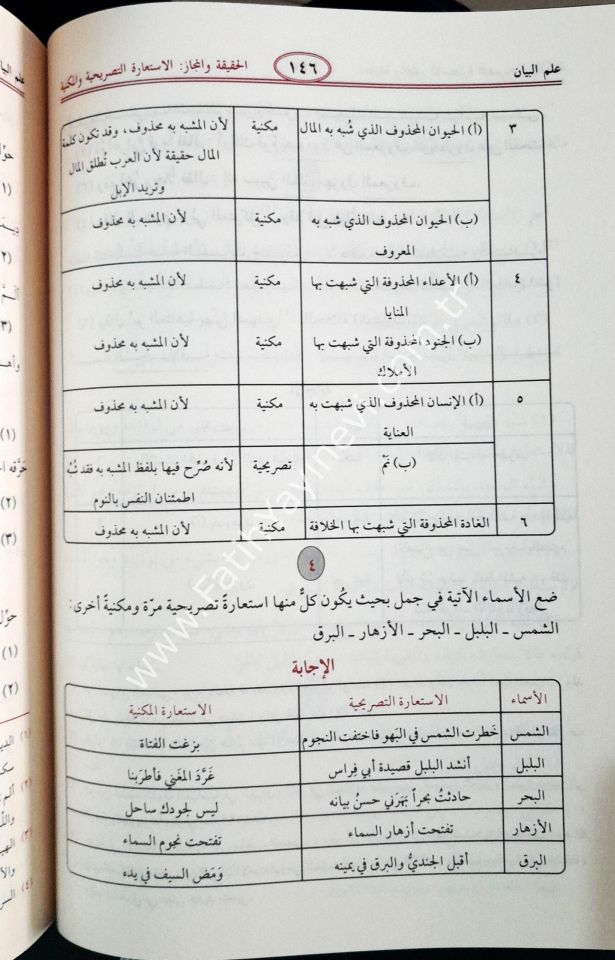 علم البيان
١٤٦
الحقيقة والمجاز: الاستعارة التصريحية والمكنية
٣ (أ) الحيوان المحذوف الذي شُبه به المال مكنية لأن المشبه به محذوف، وقد تكون كلمة
المال حقيقة لأن العرب تُطلق المال
وتريد الإبل
(ب) الحيوان المحذوف الذي شبه به مكنية لأن المشبه به محذوف
المعروف
٤ (أ) الأعداء المحذوفة التي شبهت بها مكنية لأن المشبه به محذوف
المنايا
(ب) الجنود المحذوفة التي شبهت بها مكنية لأن المشبه به محذوف
الأملاك
٥ (أ) الإنسان المحذوف الذي شبهت به مكنية لأن المشبه به محذوف
العناية
(ب) نَمْ تصريحية لأنه صُرِّح فيها بلفظ المشبه به فقد
اطمئنان النفس بالنوم
٦ الغادة المحذوفة التي شبهت بها الخلافة مكنية لأن المشبه به محذوف
٤
ضع الأسماء الآتية في جمل بحيث يكون كلٌّ منها استعارةً تصريحية مرّة ومكنيةً أخرى:
الشمس ـ البلبل ـ البحر ـ الأزهار ـ البرق
الإجابة
الأسماء الاستعارة التصريحية الاستعارة المكنية
الشمس خَطرت الشمس في البَهو فاختفت النجوم بزغت الفتاة
البلبل أنشد البلبل قصيدة أبي فِراس غَرَّدَ المغني فأطرَبنا
البحر حادثتُ بحراً بَهَرَني حسنُ بيانه ليس لجودك ساحل
الأزهار تفتحت أزهار السماء تفتحت نجوم السماء
البرق أقبل الجنديُّ والبرق في يمينه وَمَض السيف في يده
www.FatihYayinevi.com.tr